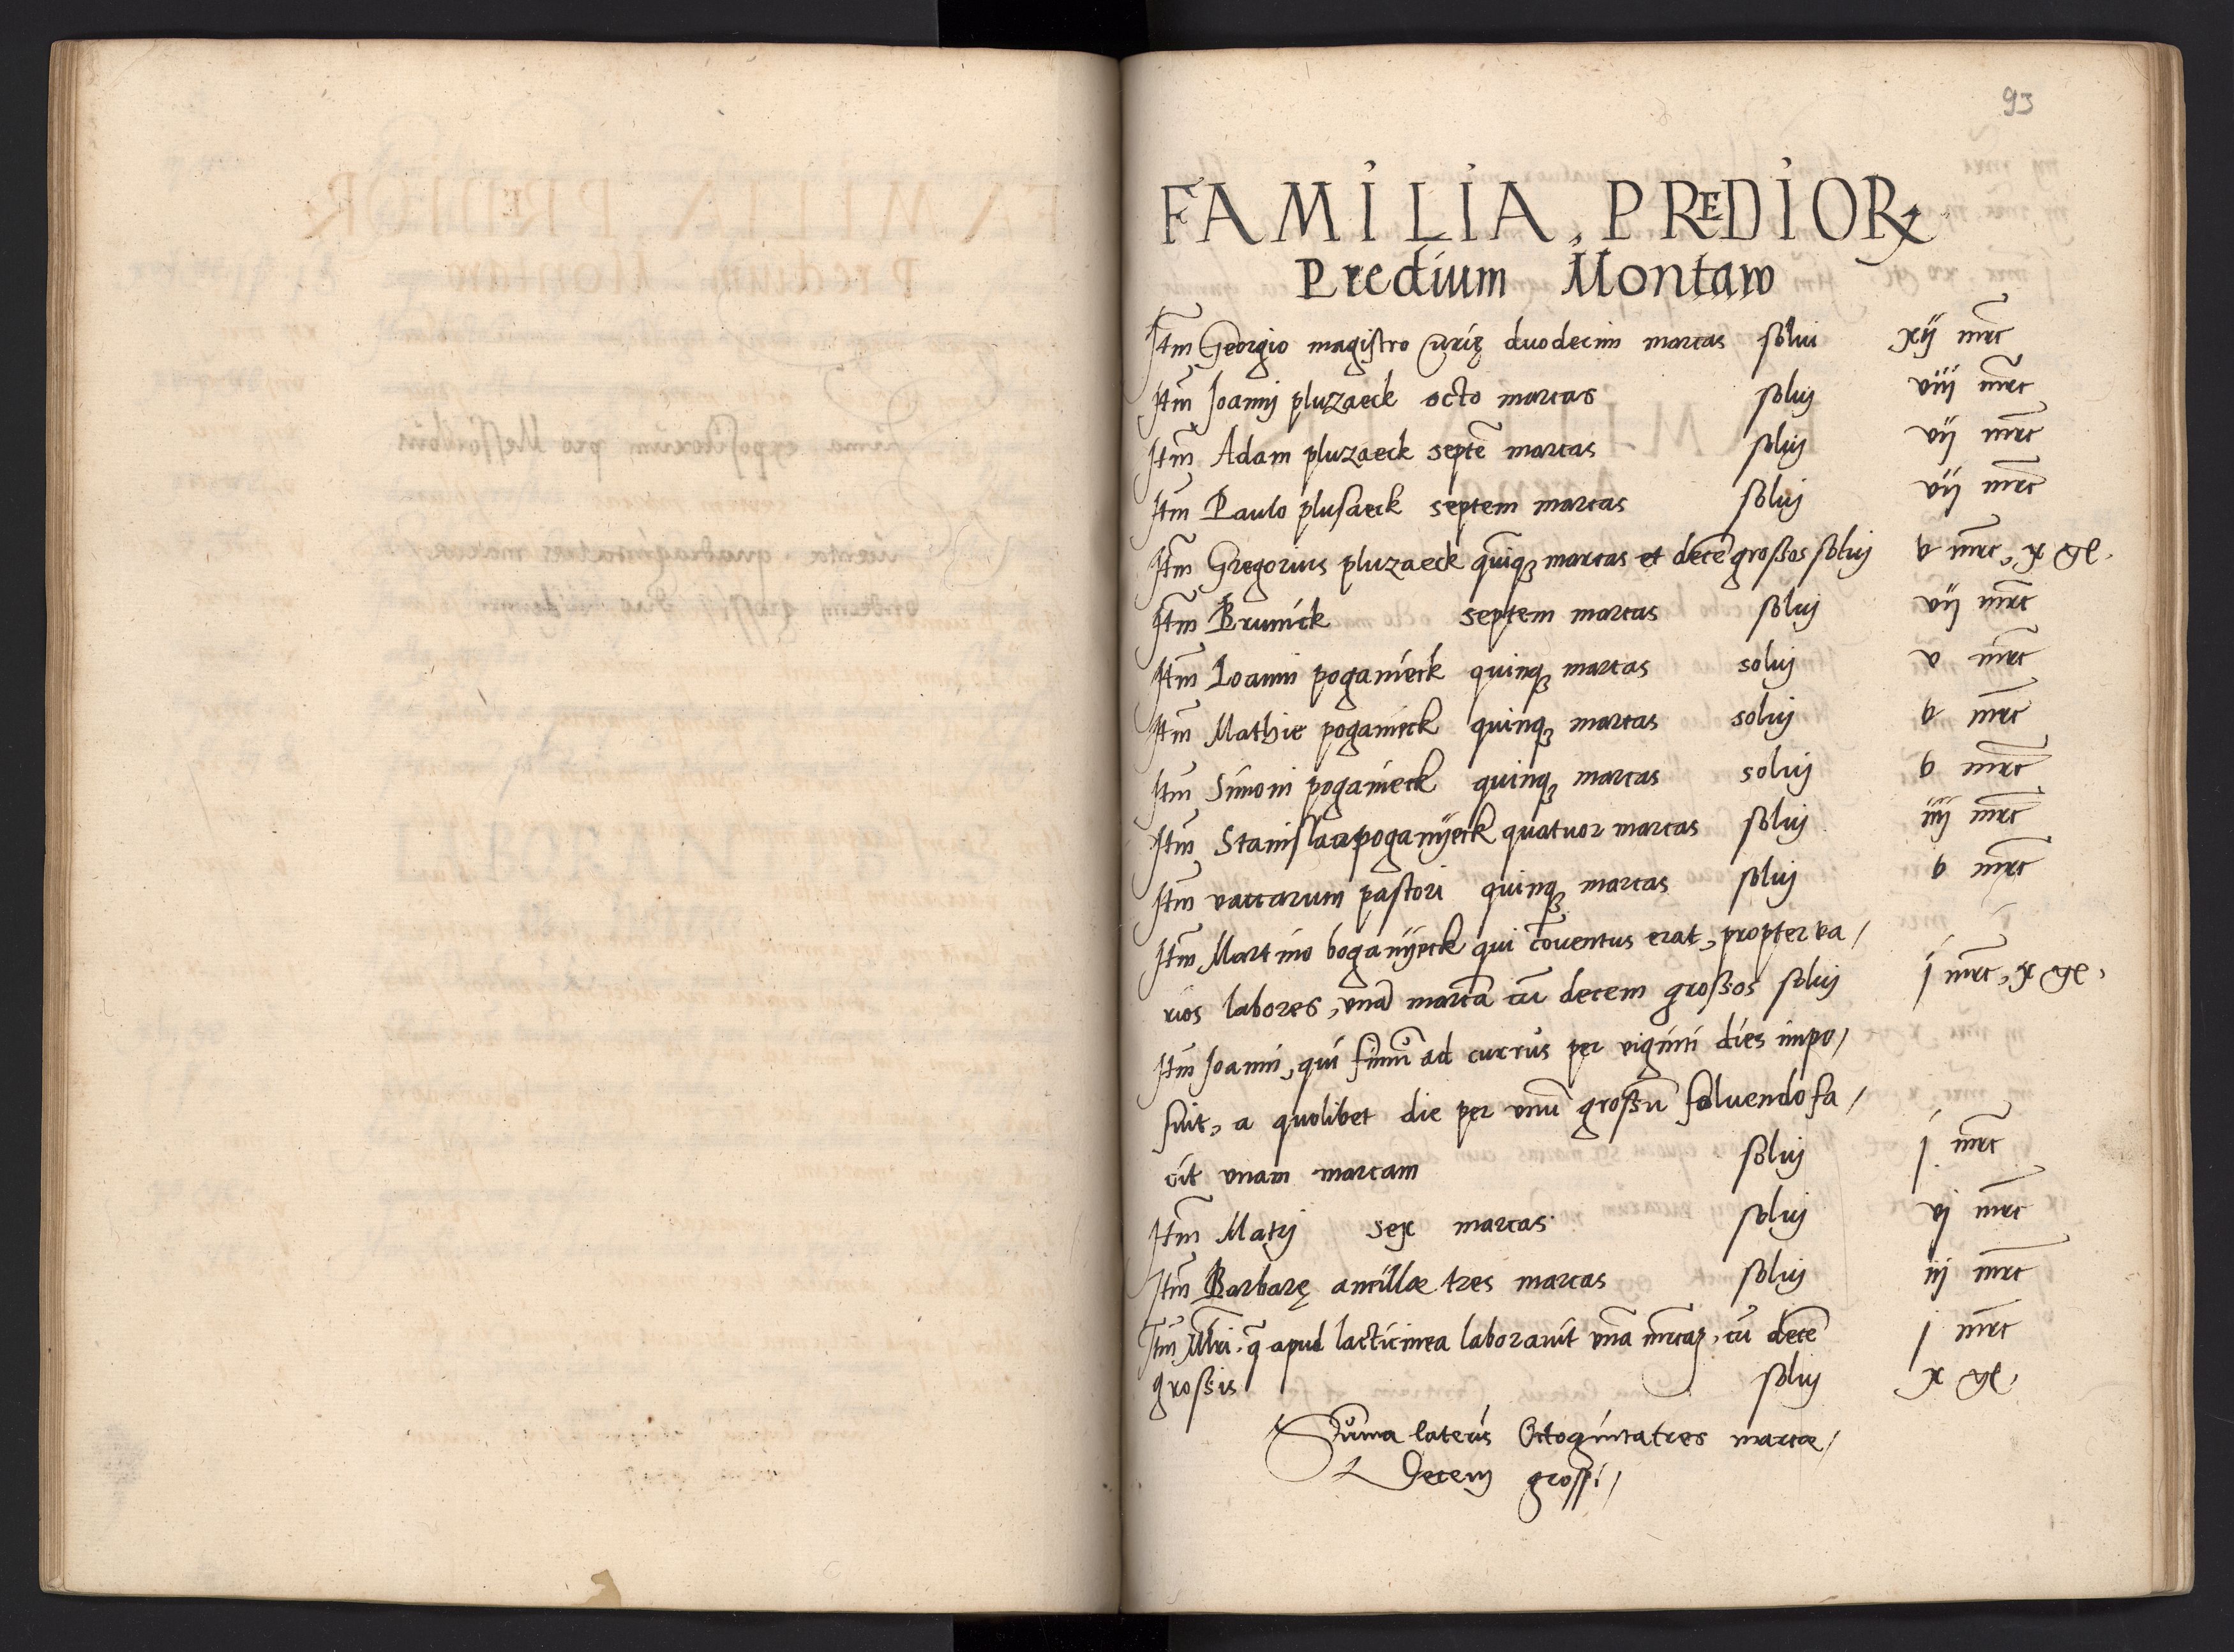 93
FAMILIA, PREDIORꝝ
Predium Montaw
Itm̃ Georgio magistro curię duodecim marcas solui xij mrc̃
Itm̃ Joanni pluzaeck octo marcas soluj viij mrc̃
Itm̃ Adam pluzaeck septẽ marcas soluj vij mrc̃
Itm̃ Paulo plusaeck septem marcas soluj vij mrc̃
Itm̃ Gregorius pluzaeck quĩqꝫ marcas et decẽ grossos soluj v mrc̃, x gr.
Itm̃ Brunick septem marcas soluj vij mrc̃
Itm̃ Ioanni poganieck quinqꝫ marcas soluj v mrc̃
Itm̃ Mathie poganieck quinqꝫ marcas soluj v mrc̃
Itm̃ Simoni poganieck quinqꝫ marcas soluj v mrc̃
Itm̃ Stanislao poganÿeck quatuor marcas soluj iiij mrc̃
Itm̃ vaccarum pastori quinqꝫ marcas soluj v mrc̃
Itm̃ Martino boganÿeck qui cõuentus erat, propter va/
rios labores, vnã marcã cũ decem grossos soluj j mrc̃, x gr,
Itm̃ Joanni, qui fimũ ad currus per viginti dies impo/
suit, a quolibet die per vnũ grossũ soluendo fa/
cit vnam marcam soluj j mrc̃
Itm̃ Matij sex marcas soluj vj mrc̃
Itm̃ Barbarę ancillæ tres marcas soluj iij mrc̃
Itm̃ Mlri. q̃ apud lacticinea laborauit vnã mrcaꝫ, cũ decẽ j mrc̃
grossis soluj x gr,
Sũma lateris Octogintatres marcæ/
Decem grossi/